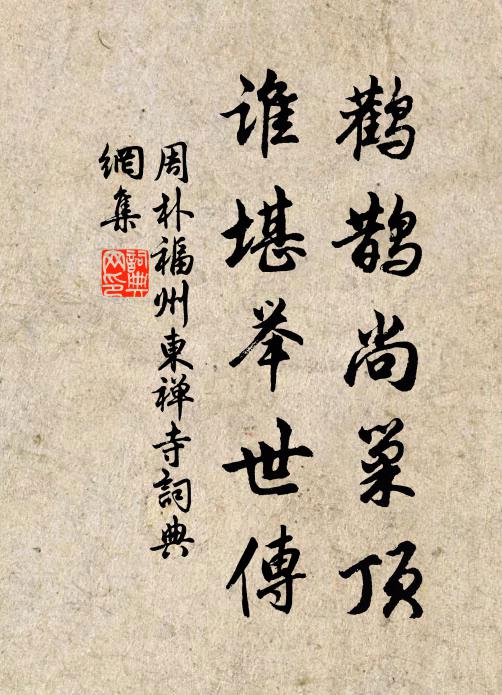 鹳鹊尚巢顶
谁堪举世傳
周朴福州東禅寺詞典
網集
詞典網印